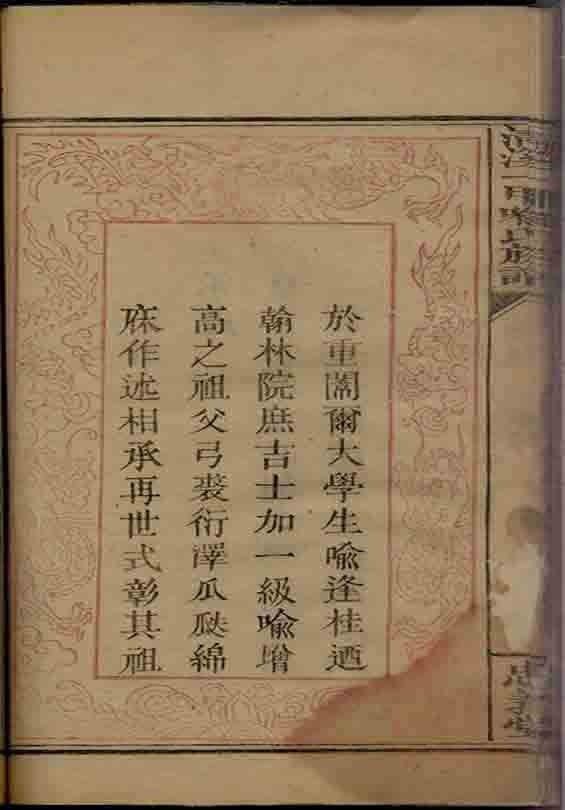 喻氏族譜
於重闈爾大學生喻逢桂迺
翰林院庶吉士加一級喻增
高之祖父弓裘衍澤瓜瓞綿
庥作述相承再世式彰其祖